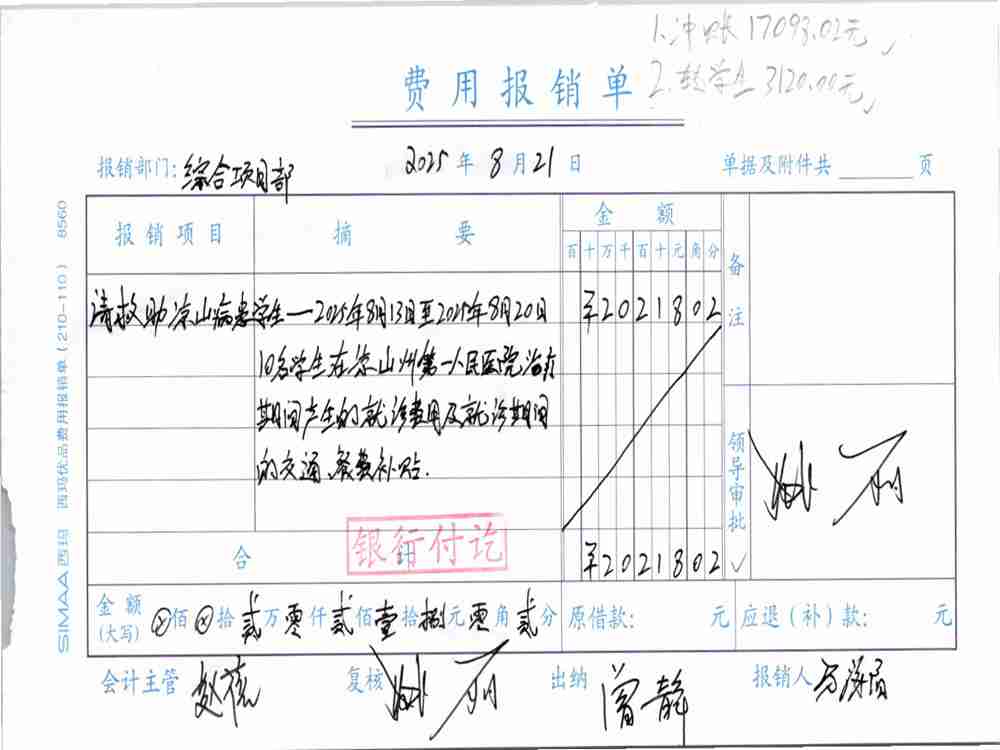 1.冲账17093.02元
2.转学生3120.00元
费用报销单
报销部门:综合项目部 2025年8月21日 单据及附件共 页
报销项目 摘要 金额 备注
百十万千百十元角分
请救助凉山病患学生一2025年8月13日至2025年8月20日 ¥2021802
10名学生在凉山州第一人民医院治疗
期间产生的就诊费用及就诊期间
的交通、餐费补贴.
领导审批
银行付讫
合计 ¥2021802
金额(大写) ⊗佰⊗拾贰万零仟贰佰壹拾捌元零角贰分 原借款: 元 应退(补)款: 元
会计主管 复核 出纳 曾静 报销人
SIMAA西玛 西玛优品费用报销单(210-110) 8560